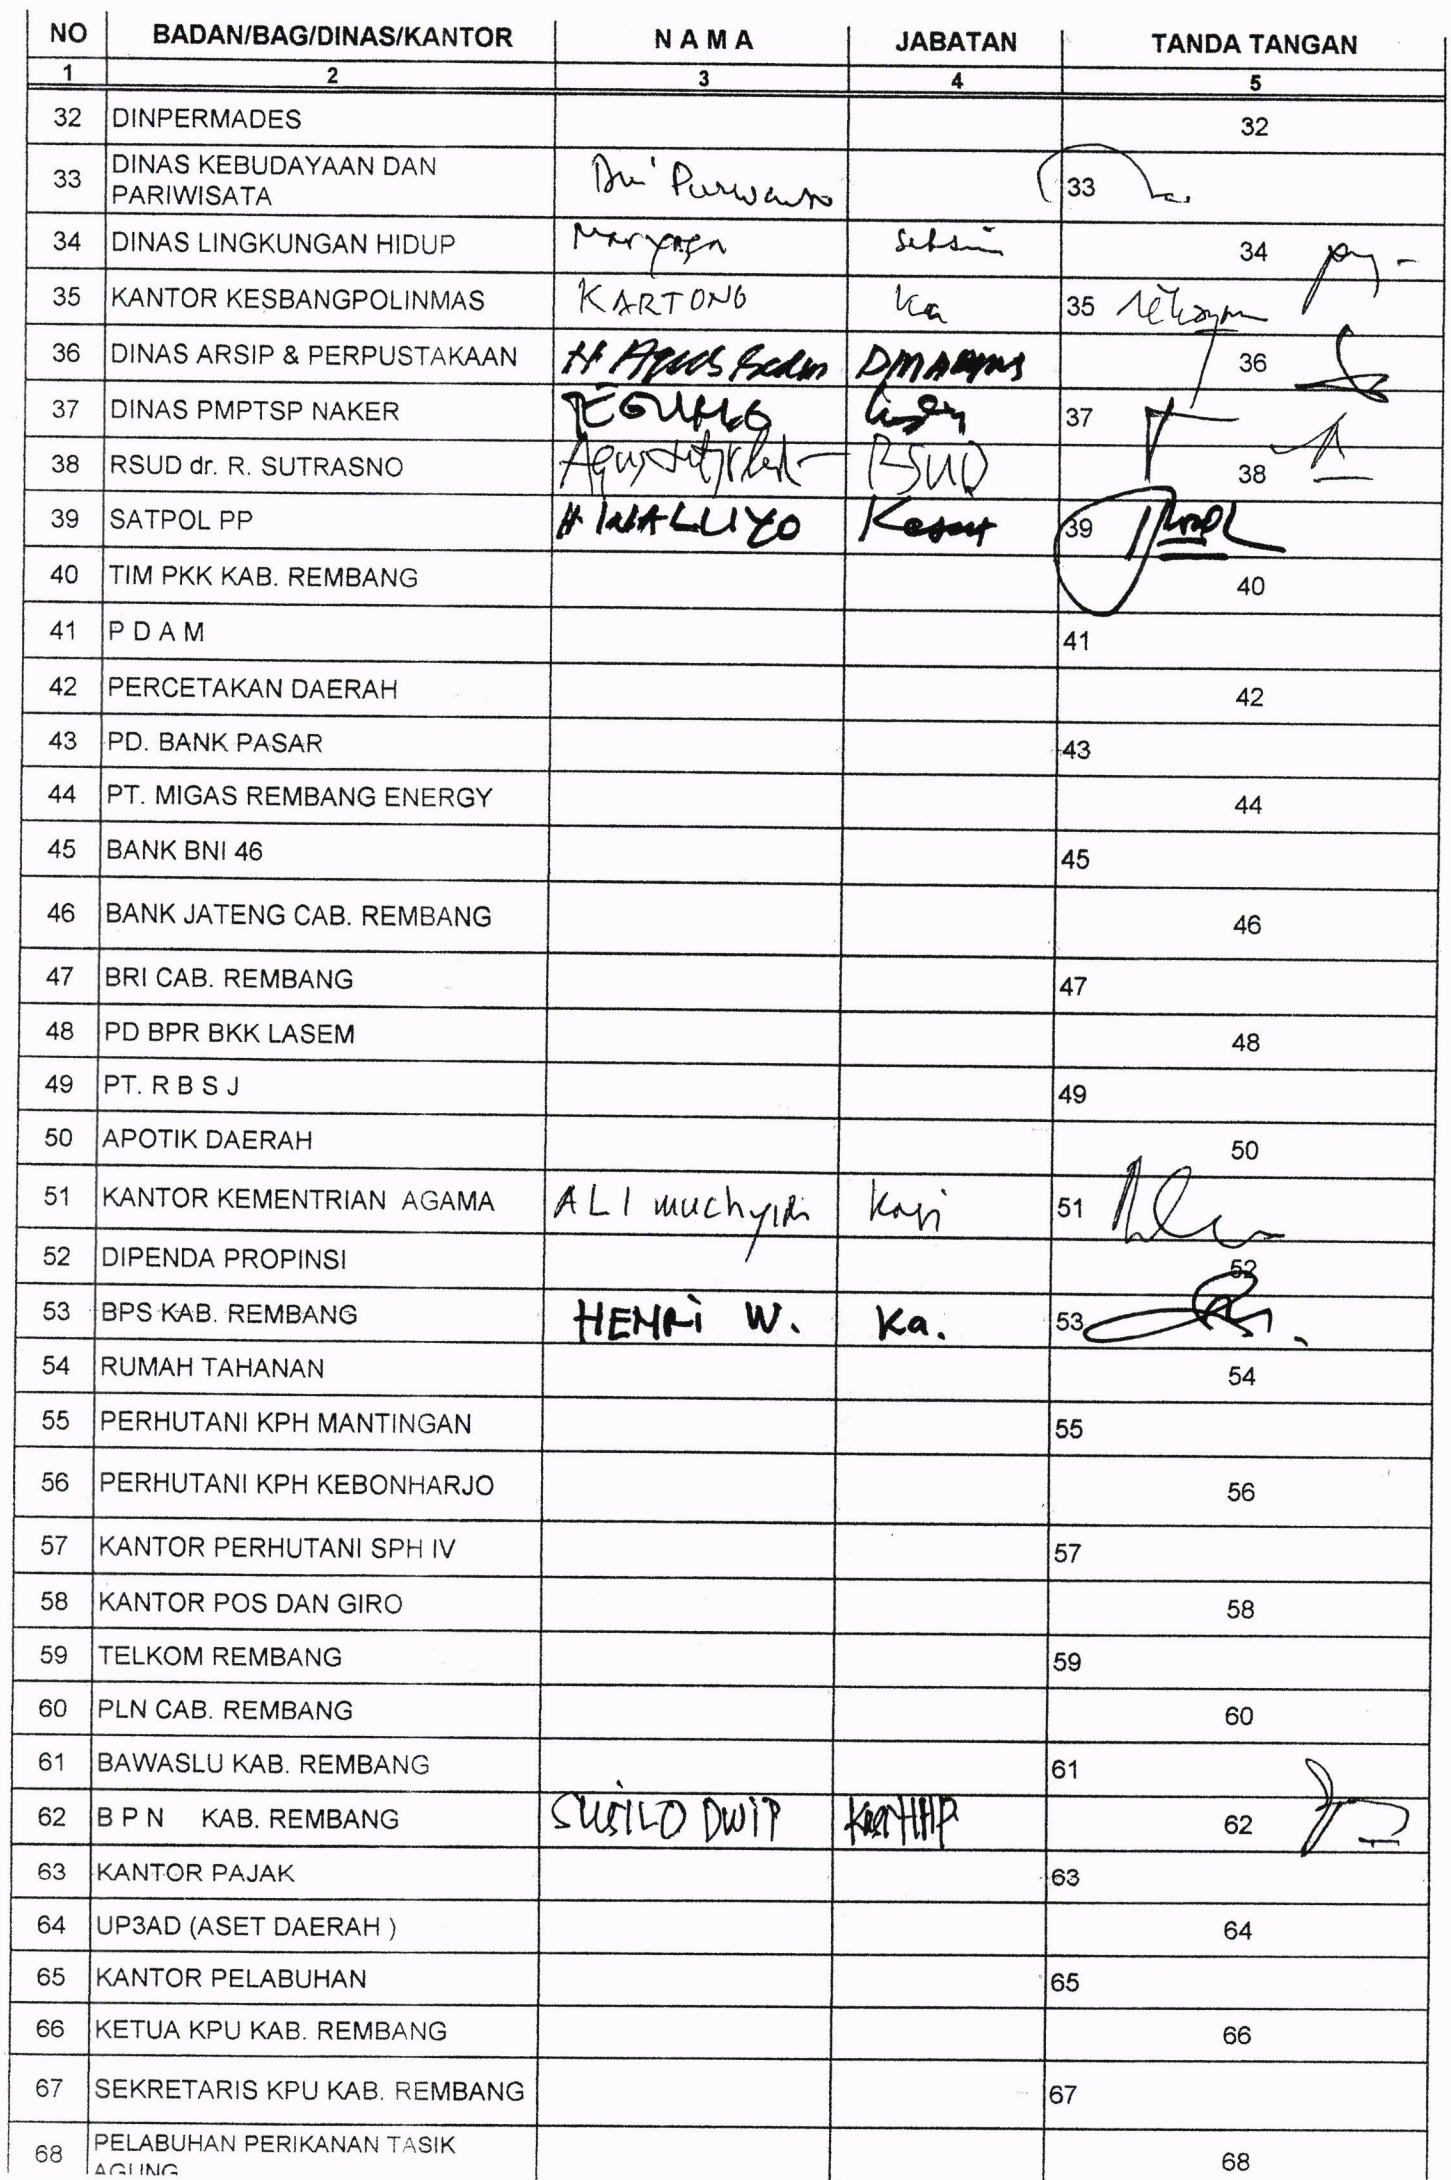 NO BADAN/BAG/DINAS/KANTOR N A M A JABATAN TANDA TANGAN
1 2 3 4 5
32 DINPERMADES 32
33 DINAS KEBUDAYAAN DAN
PARIWISATA Purwanto 33
34 DINAS LINGKUNGAN HIDUP 34
35 KANTOR KESBANGPOLINMAS KARTONO Ka 35
36 DINAS ARSIP & PERPUSTAKAAN H Agus 36
37 DINAS PMPTSP NAKER TEGUH 37
38 RSUD dr. R. SUTRASNO RSUD 38
39 SATPOL PP H WALUYO 39
40 TIM PKK KAB. REMBANG 40
41 P D A M 41
42 PERCETAKAN DAERAH 42
43 PD. BANK PASAR 43
44 PT. MIGAS REMBANG ENERGY 44
45 BANK BNI 46 45
46 BANK JATENG CAB. REMBANG 46
47 BRI CAB. REMBANG 47
48 PD BPR BKK LASEM 48
49 PT. R B S J 49
50 APOTIK DAERAH 50
51 KANTOR KEMENTRIAN AGAMA ALI Kasi 51
52 DIPENDA PROPINSI 52
53 BPS KAB. REMBANG HENRI W. Ka. 53
54 RUMAH TAHANAN 54
55 PERHUTANI KPH MANTINGAN 55
56 PERHUTANI KPH KEBONHARJO 56
57 KANTOR PERHUTANI SPH IV 57
58 KANTOR POS DAN GIRO 58
59 TELKOM REMBANG 59
60 PLN CAB. REMBANG 60
61 BAWASLU KAB. REMBANG 61
62 B P N KAB. REMBANG SUSILO DWI P 62
63 KANTOR PAJAK 63
64 UP3AD (ASET DAERAH ) 64
65 KANTOR PELABUHAN 65
66 KETUA KPU KAB. REMBANG 66
67 SEKRETARIS KPU KAB. REMBANG 67
68 PELABUHAN PERIKANAN TASIK
AGUNG 68